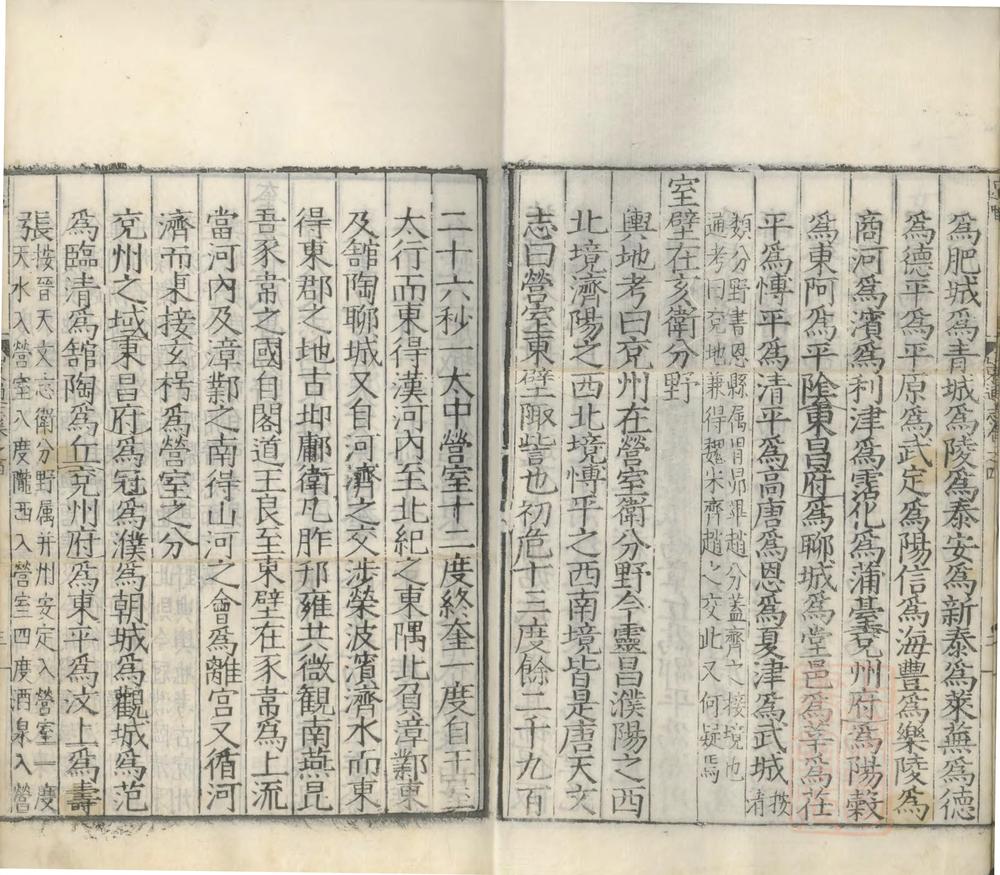 為肥城為青城為陵為泰安為新泰為萊蕪為德
為德平為平原為武定為陽信為海豐為樂陵為
商河為濱為利津為霑化為蒲臺兗州府為陽穀
為東阿為平陰東昌府為聊城為堂邑為莘為茌
平為愽平為清平為高唐為恩為夏津為武城按清
類分野書恩縣属胃昴準趙分蓋齊之接境也
通考曰兗地兼得魏宋齊趙之交此又何疑焉
室壁在亥衛分野
輿地考曰兗州在營室衛分野今靈昌濮陽之西
北境濟陽之西北境愽平之西南境皆是唐天文
志曰營室東壁陬訾也初危十三度餘二千九百
二十六秒一太中營室十二度終奎一度自王屋
太行而東得漢河內至北紀之東隅北負漳鄴東
及舘陶聊城又自河濟之交涉滎波濱濟水而東
得東郡之地古邶鄘衛凡胙邘雍共微觀南燕昆
吾豕韋之國自閣道王良至東壁在豕韋為上流
當河內及漳鄴之南得山河之會為離宮又循河
濟而東接玄枵為營室之分
兗州之域東昌府為冠為濮為朝城為觀城為范
為臨清為舘陶為丘兗州府為東平為汶上為壽
張按晉天文志衛分野属并州安定入營室一度
天水入營室八度隴西入營室四度酒泉入營